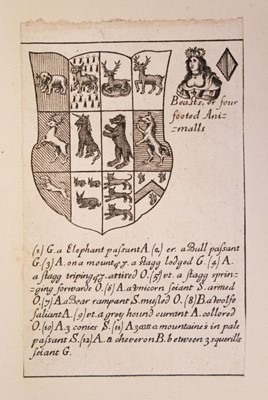 Beasts, or four
footed Ani=
=malls
(1) G. a Elephant passant A. (2) er. a Bull passant
G. (3) A. on a mount a stagg lodged G. (4) A.
a stagg triping attired O. (5) vt. a stagg sprin=
=ging forwards O. (6) A. a Unicorn seiant S. armed
O. (7) A. a Bear rampant S. musled O. (8) B. a wolfe
saliant A. (9) vt. a grey hound currant A. collored
O. (10) A. 3 conies S. (11) A. 3 mountaines in pale
passant S. (12) A. a cheveron B. between 3 squerills
seiant G.